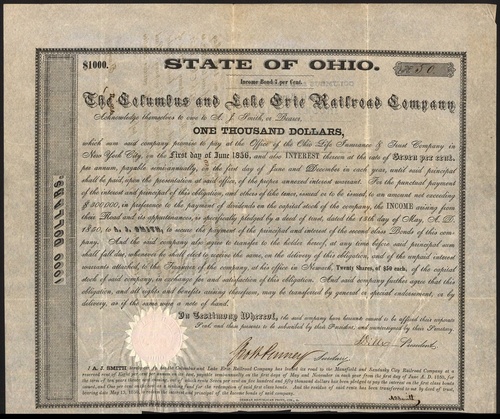 $1000.
STATE OF OHIO.
No. 50
Income Bond 7 per Cent.
The Columbus and Lake Erie Railroad Company
Acknowledge themselves to owe to A. J. Smith, or Bearer,
ONE THOUSAND DOLLARS,
which sum said company promise to pay at the Office of the Ohio Life Insurance & Trust Company in
New York City, on the First day of June 1856, and also INTEREST thereon at the rate of Seven per cent.
per annum, payable semi-annually, on the first day of June and December in each year, until said principal
shall be paid, upon the presentation at said office, of the proper annexed interest warrant. For the punctual payment
of the interest and principal of this obligation, and others of like tenor, issued or to be issued to an amount not exceeding
$300,000, in preference to the payment of dividends on the capital stock of the company, the INCOME arising from
their Road and its appurtenances, is specifically pledged by a deed of trust, dated the 15th day of May, A. D.
1850, to A. J. SMITH, to secure the payment of the principal and interest of the second class Bonds of this com-
pany. And the said company also agree to transfer to the holder hereof, at any time before said principal sum
shall fall due, whenever he shall elect to receive the same, on the delivery of this obligation, and of the unpaid interest
warrants attached, to the Treasurer of the company, at his office in Newark, Twenty Shares, of $50 each, of the capital
stock of said company, in exchange for and satisfaction of this obligation. And said company further agree that this
obligation, and all rights and benefits arising therefrom, may be transferred by general or special endorsement, or by
delivery, as if the same were a note of hand.
In Testimony Whereof, the said company have hereunto caused to be affixed their corporate
Seal, and these presents to be subscribed by their President, and countersigned by their Secretary.
President.
Secretary.
1000 DOLLARS.
I A. J. SMITH,